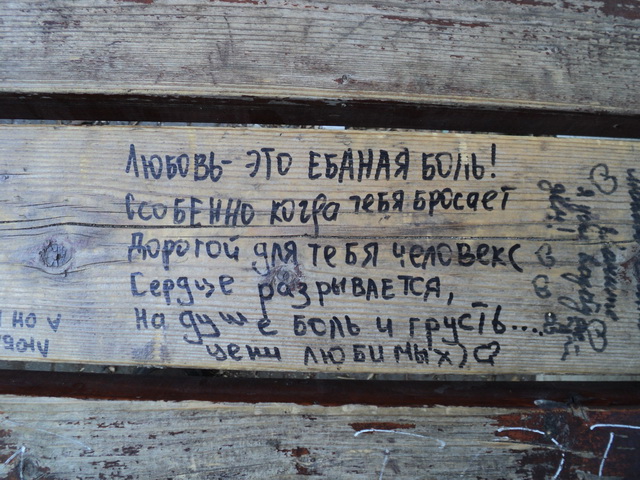 ЛЮБОВЬ- ЭТО ЕБАНАЯ БОЛЬ!
ОСОБЕННО когда тебя бросает
Дорогой для тебя человек(
Сердце разрывается,
на душе боль и грусть....
цени любимых)
А ОН
ЛЮБ